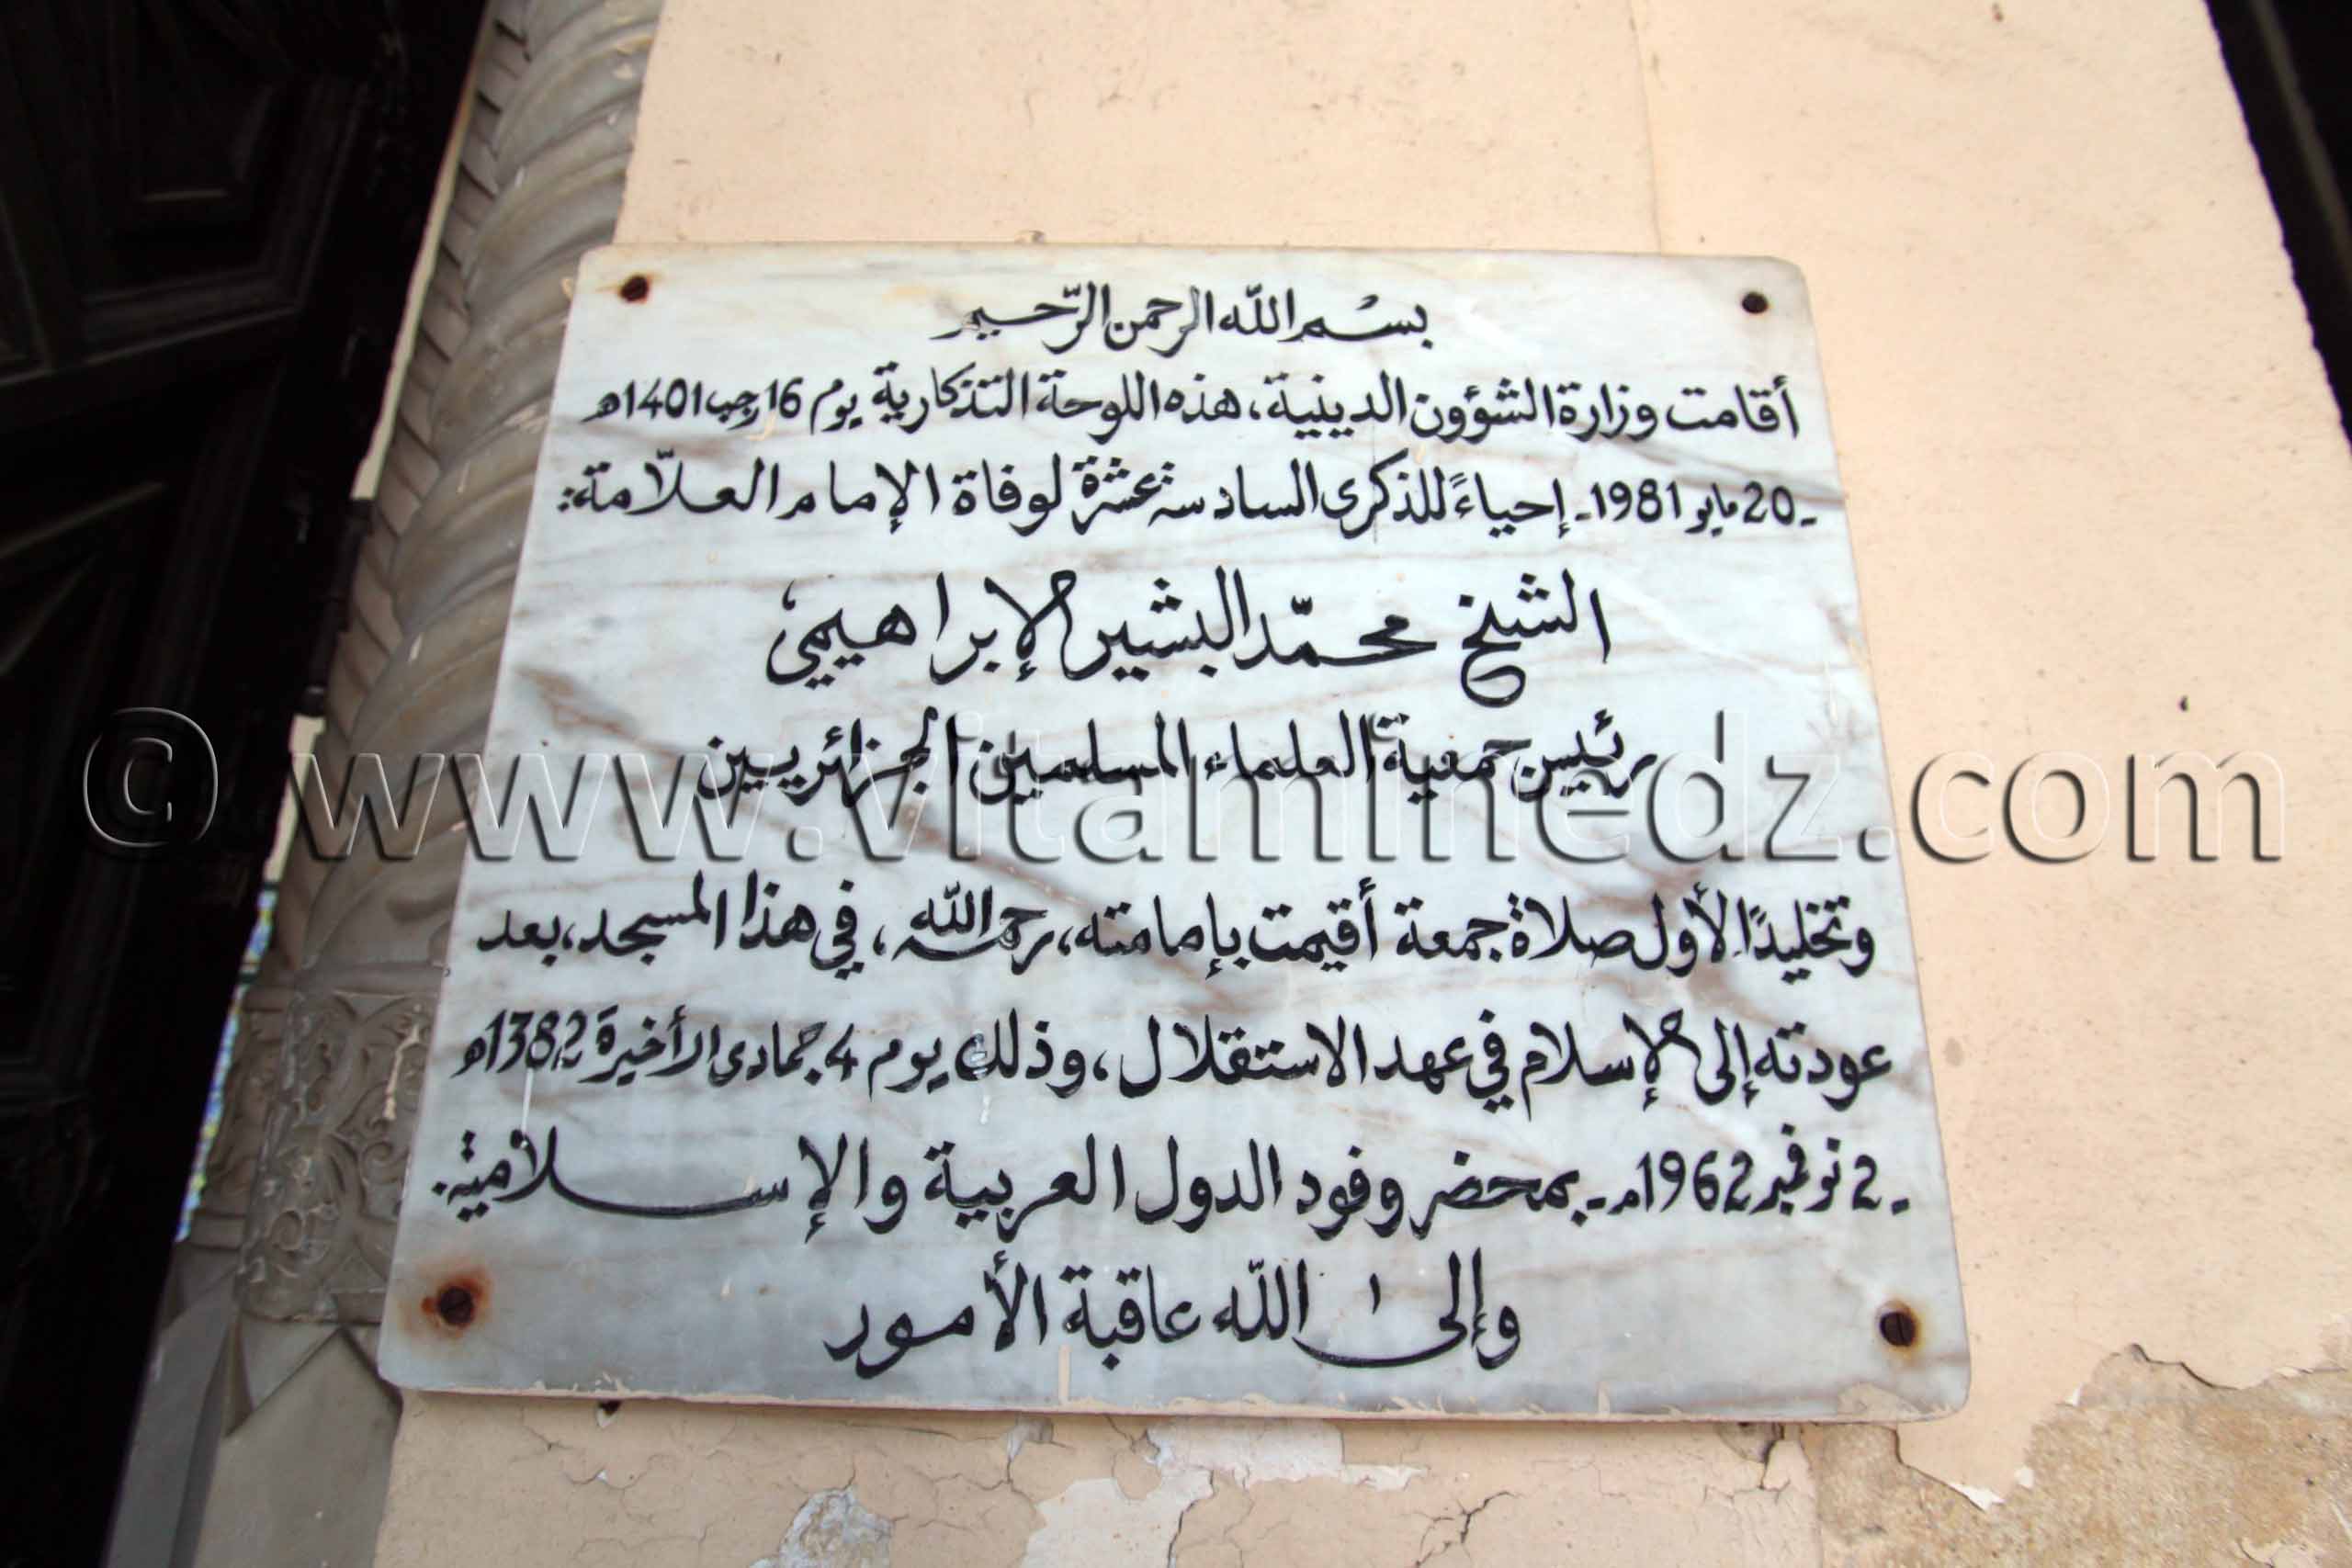 بسْم اللّه الرحمن الرّحيم
أقامت وزارة الشؤون الدينية، هذه اللوحة التذكارية يوم 16 رجب 1401هـ
- 20 مايو 1981 - إحياءً للذكرى السادسة عشرة لوفاة الإمام العلاّمة:
الشيخ محمّد البشير الإبراهيمي،
رئيس جمعية العلماء المسلمين الجزائريين
© www.vitaminedz.com
وتخليدًا لأول صلاة جمعة أقيمت بإمامته، رحمه اللّه، في هذا المسجد، بعد
عودته إلى الإسلام في عهد الاستقلال، وذلك يوم 4 جمادى الأخيرة 1382هـ
- 2 نوفمبر 1962م - بمحضر وفود الدول العربية والإسلامية.
وإلى اللّه عاقبة الأمور